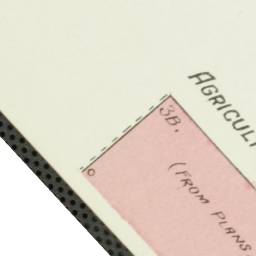 AGRICULT
3B.
(FROM PLANS